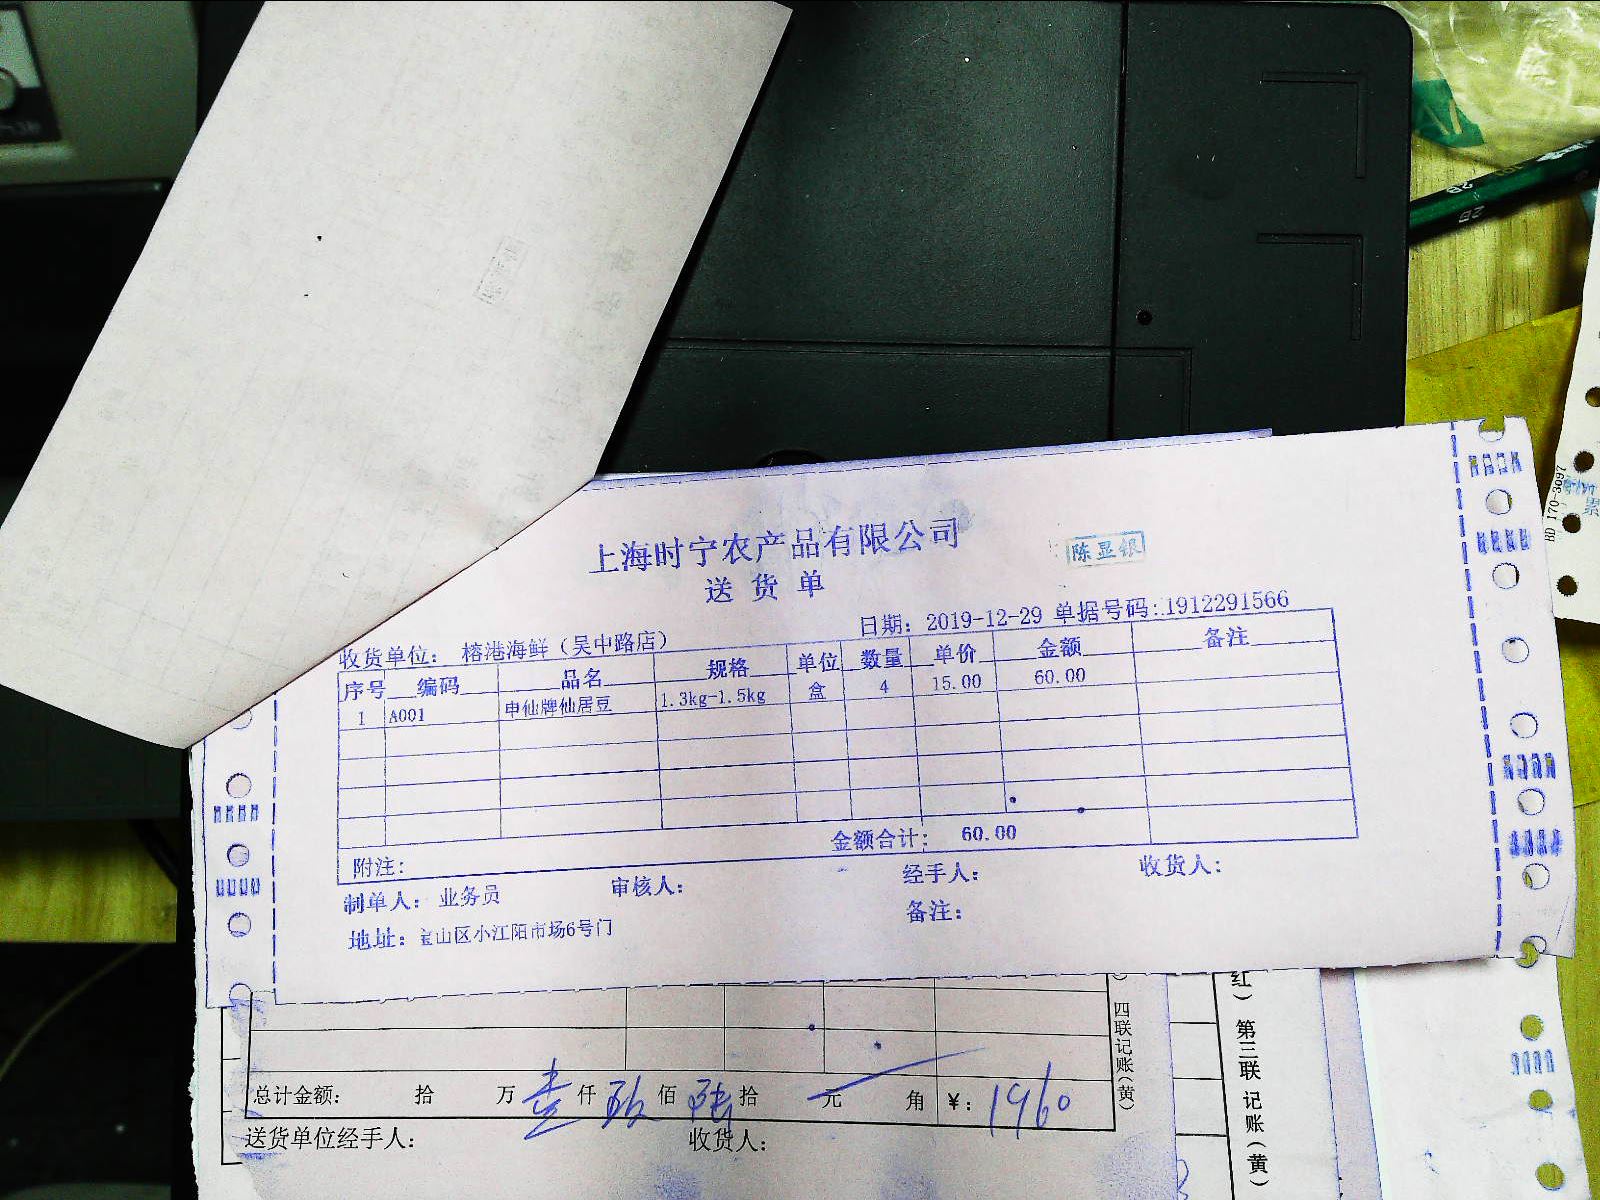 上海时宁农产品有限公司
陈显银
送货单
日期： 2019-12-29 单据号码:1912291566
收货单位： 榕港海鲜（吴中路店）
序号 编码 品名 规格 单位 数量 单价 金额 备注
1 A001 申仙牌仙居豆 1.3kg-1.5kg 盒 4 15.00 60.00
金额合计： 60.00
附注：
制单人： 业务员 审核人： 经手人： 收货人：
地址： 宝山区小江阳市场6号门 备注：
四联记账(黄)
红）第三联 记账(黄)
总计金额： 拾 万 壹 仟 佰 陆 拾 元 角 ¥： 1960
送货单位经手人： 收货人：
2B
2B
170-3097